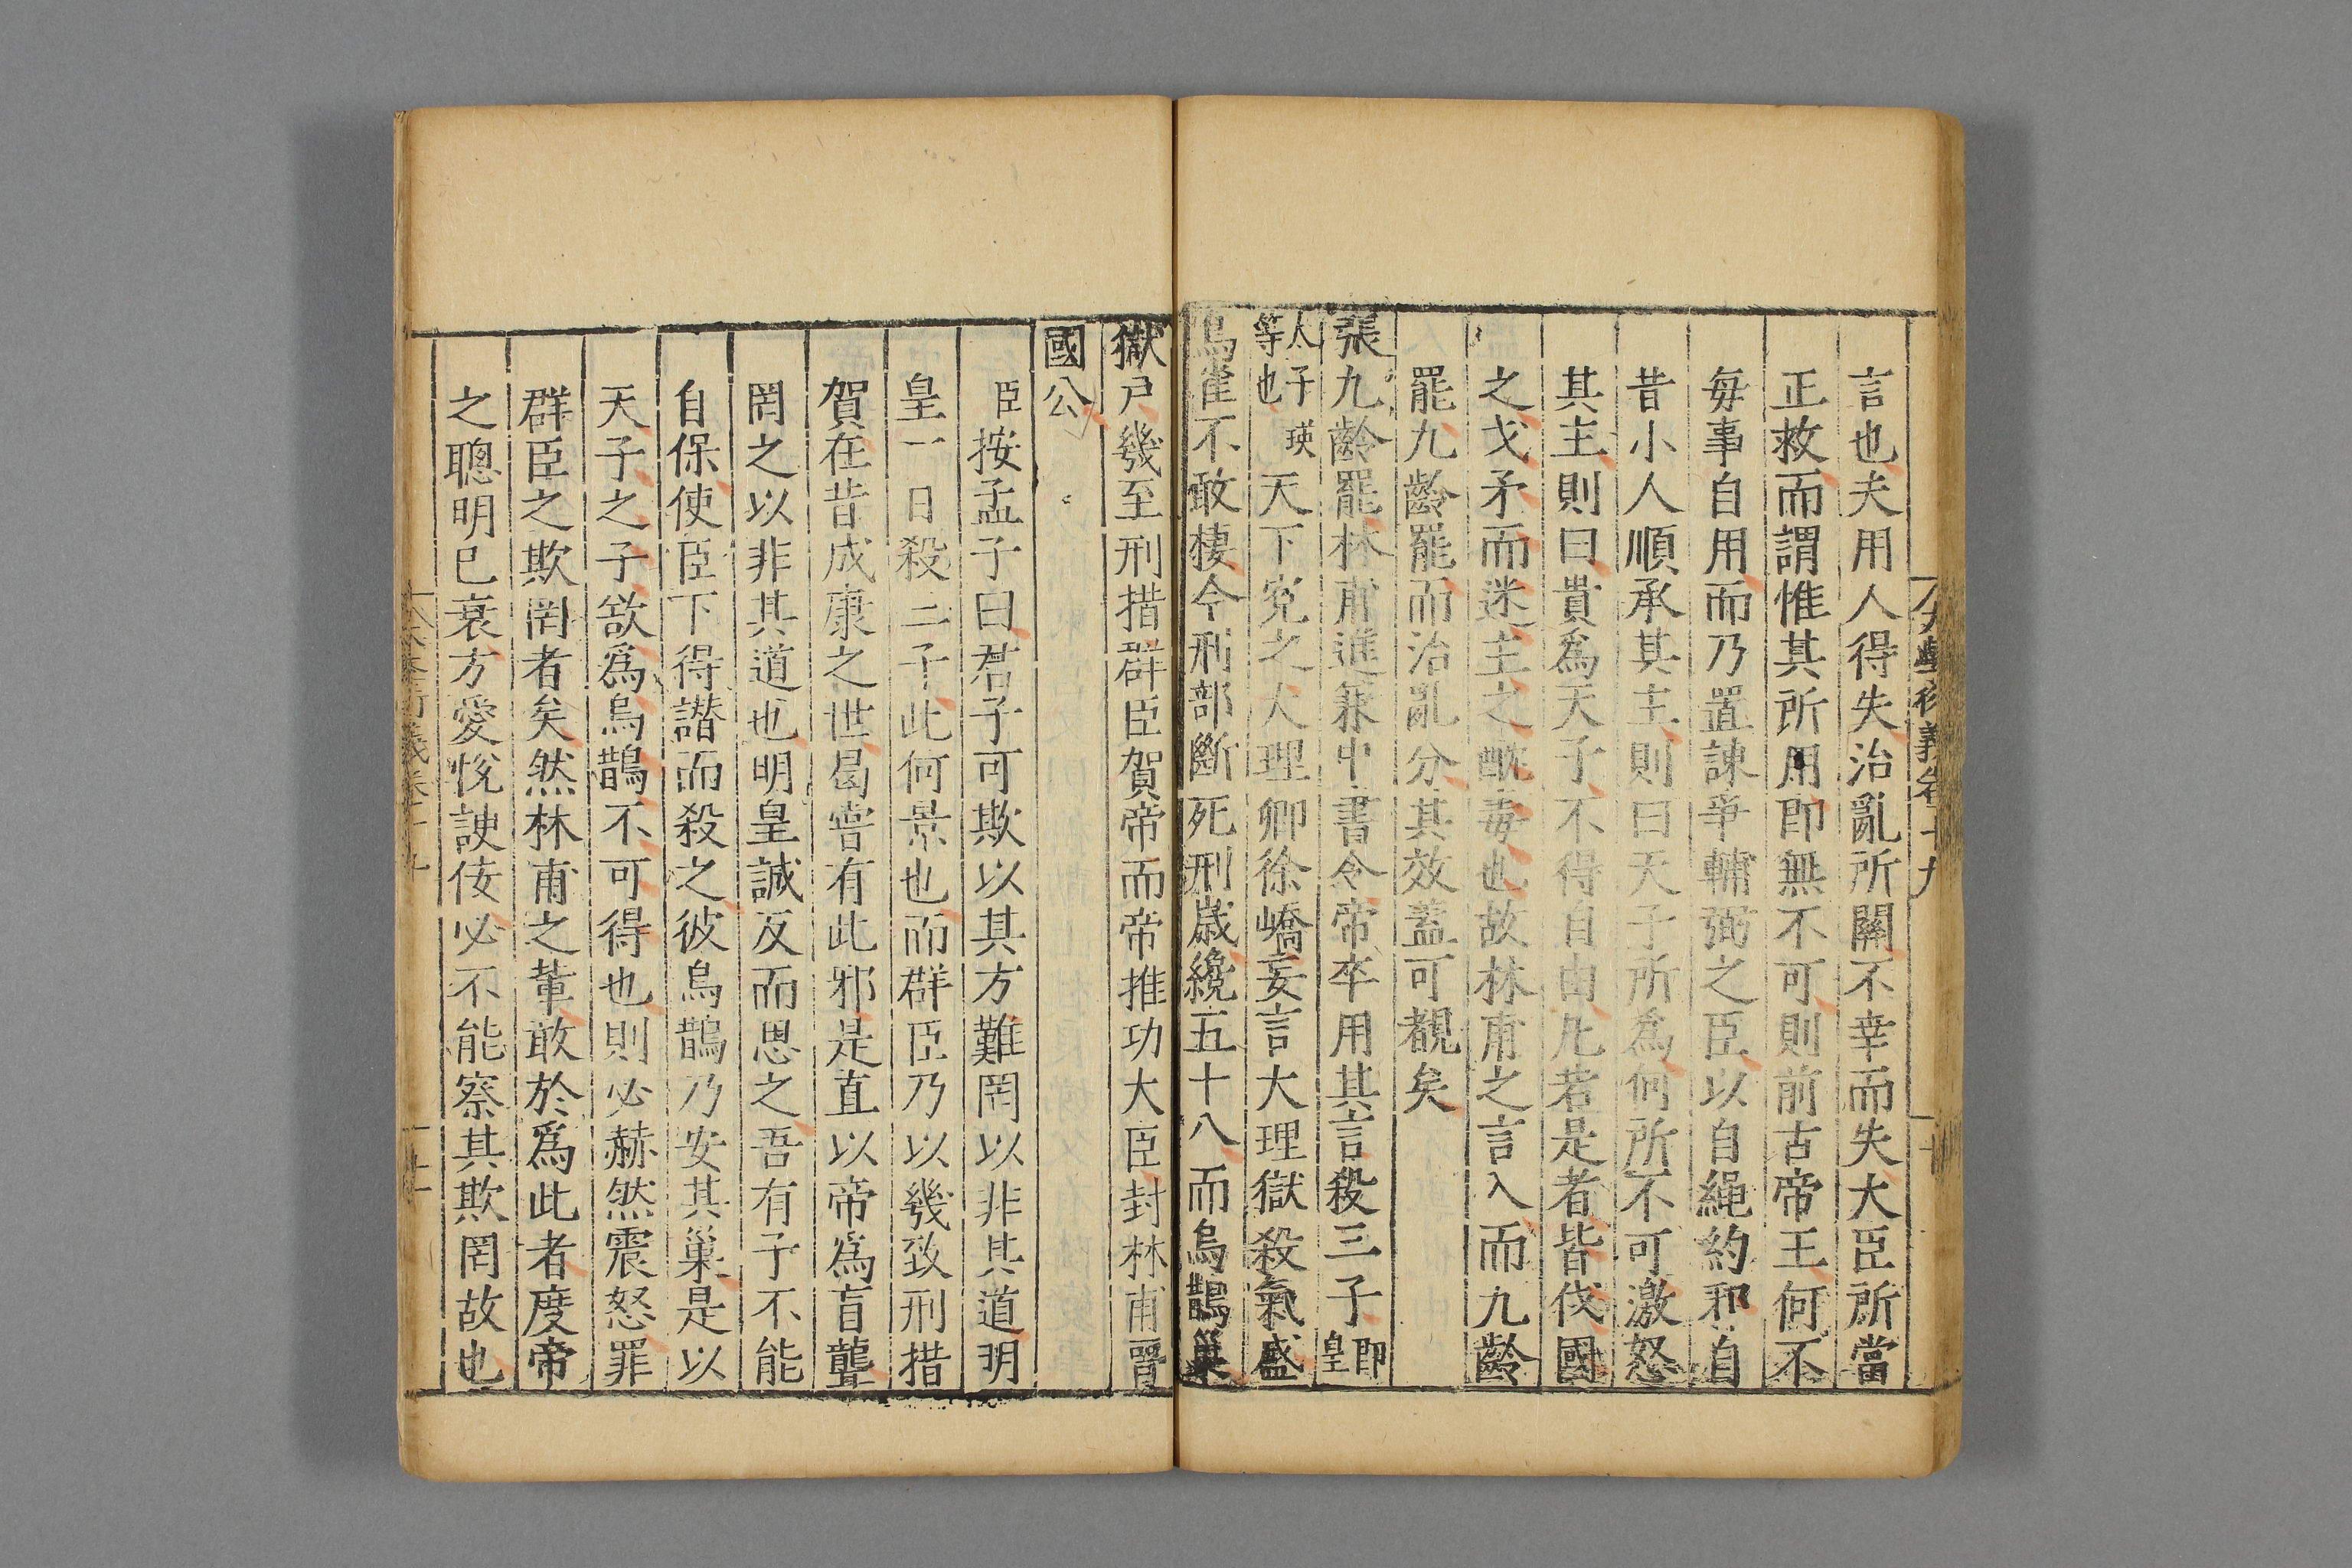 大學衍義卷十九
言也夫用人得失治亂所關不幸而失大臣所當
正救而謂惟其所用即無不可則前古帝王何不
每事自用而乃置諫爭輔弼之臣以自繩約邪自
昔小人順承其主則曰天子所爲何所不可激怒
其主則曰貴爲天子不得自由凢若是者皆伐國
之戈矛而迷主之酖毒也故林甫之言入而九齡
罷九齡罷而治亂分其效蓋可覩矣
張九齡罷林甫進兼中書令帝卒用其言殺三子即皇
太子瑛等也天下寃之大理卿徐嶠妄言大理獄殺氣盛
鳥雀不敢棲今刑部斷死刑歲纔五十八而烏鵲巢
獄戶幾至刑措群臣賀帝而帝推功大臣封林甫晉
國公
臣按孟子曰君子可欺以其方難罔以非其道明
皇一日殺三子此何景也而群臣乃以幾致刑措
賀在昔成康之世曷嘗有此邪是直以帝爲盲聾
罔之以非其道也明皇誠反而思之吾有子不能
自保使臣下得譖而殺之彼烏鵲乃安其巢是以
天子之子欲爲烏鵲不可得也則必赫然震怒罪
群臣之欺罔者矣然林甫之輩敢於爲此者度帝
之聰明已衰方愛悅諛佞必不能察其欺罔故也